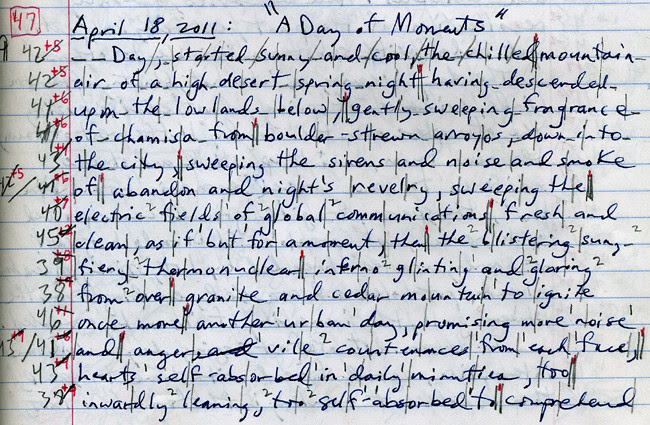 47 April 18, 2011: "A Day of Moments"
42 +8 -- Day started sunny and cool, the chilled mountain
42 +5 air of a high desert spring night having descended
41 +6 upon the lowlands below, gently sweeping fragrance
41 +6 of chamisa from boulder-strewn arroyos, down into
43 +4 the city, sweeping the sirens and noise and smoke
+5 / 41 +6 of abandon and night's revelry, sweeping the
40 +7 electric fields of global communications fresh and
45 clean, as if but for a moment, then the blistering sun,
39 +8 fiery thermonuclear inferno glinting and glaring
38 from over granite and cedar mountain to ignite
46 once more another urban day, promising more noise
/ 41 +6 and anger, and vile countenances from each face,
43 hearts self-absorbed in daily minutiea, too
38 inwardly leaning, too self-absorbed to comprehend